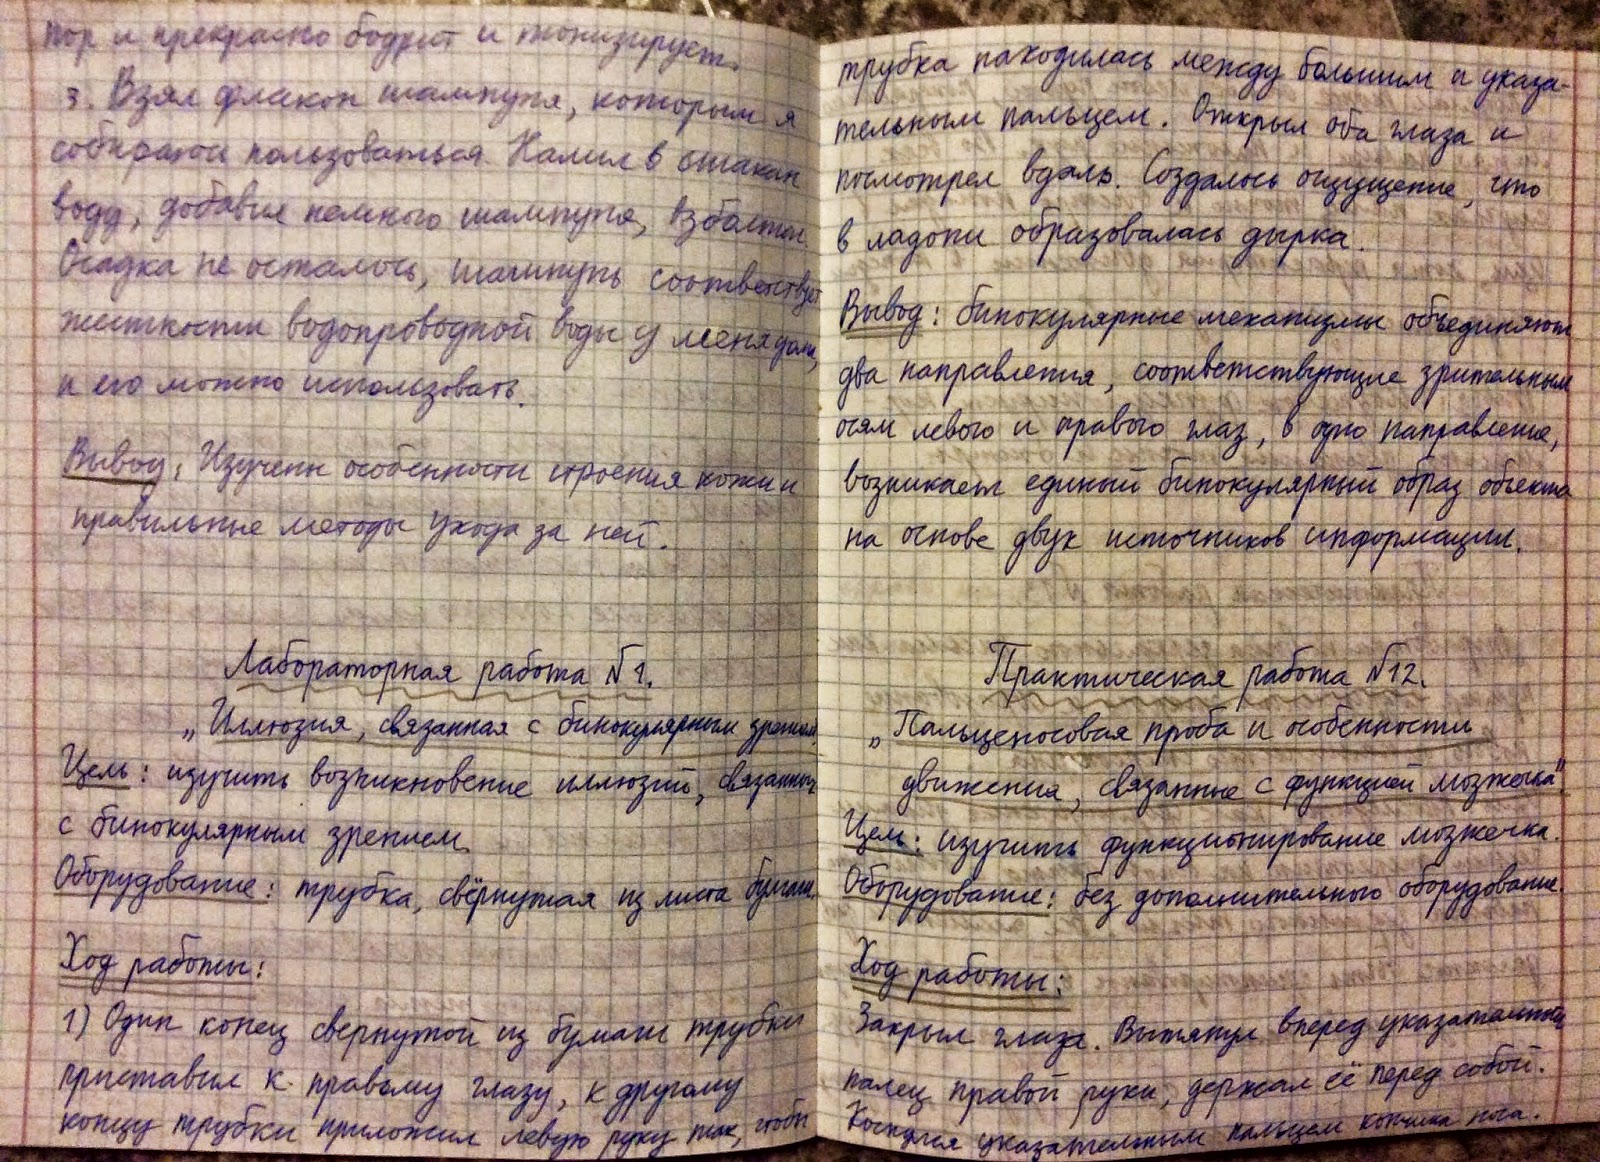 пор и прекрасно бодрит и тонизирует.
3. Взял флакон шампуня, которым я
собираюсь пользоваться. Налил в стакан
воду, добавил немного шампуня, взболтал.
Осадка не осталось, шампунь соответствует
жесткости водопроводной воды у меня дома,
и его можно использовать.
Вывод: Изучены особенности строения кожи и
правильные методы ухода за ней.
Лабораторная работа №1.
„Иллюзия, связанная с бинокулярным зрением
Цель: изучить возникновение иллюзий, связанных
с бинокулярным зрением.
Оборудование: трубка, свёрнутая из листа бумаги.
Ход работы:
1) Один конец свернутой из бумаги трубки
приставил к правому глазу, к другому
концу трубки приложил левую руку так, чтобы
трубка находилась между большим и указа-
тельным пальцем. Открыл оба глаза и
посмотрел вдаль. Создалось ощущение, что
в ладони образовалась дырка.
Вывод: бинокулярные механизмы объединяют
два направления, соответствующие зрительным
осям левого и правого глаз, в одно направление,
возникает единый бинокулярный образ объекта
на основе двух источников информации.
Практическая работа №12.
„Пальценосовая проба и особенности
движения, связанные с функцией мозжечка"
Цель: изучить функционирование мозжечка.
Оборудование: без дополнительного оборудование.
Ход работы:
Закрыл глаза. Вытянул вперед указательный
палец правой руки, держал её перед собой.
Коснулся указательным пальцем кончика носа.